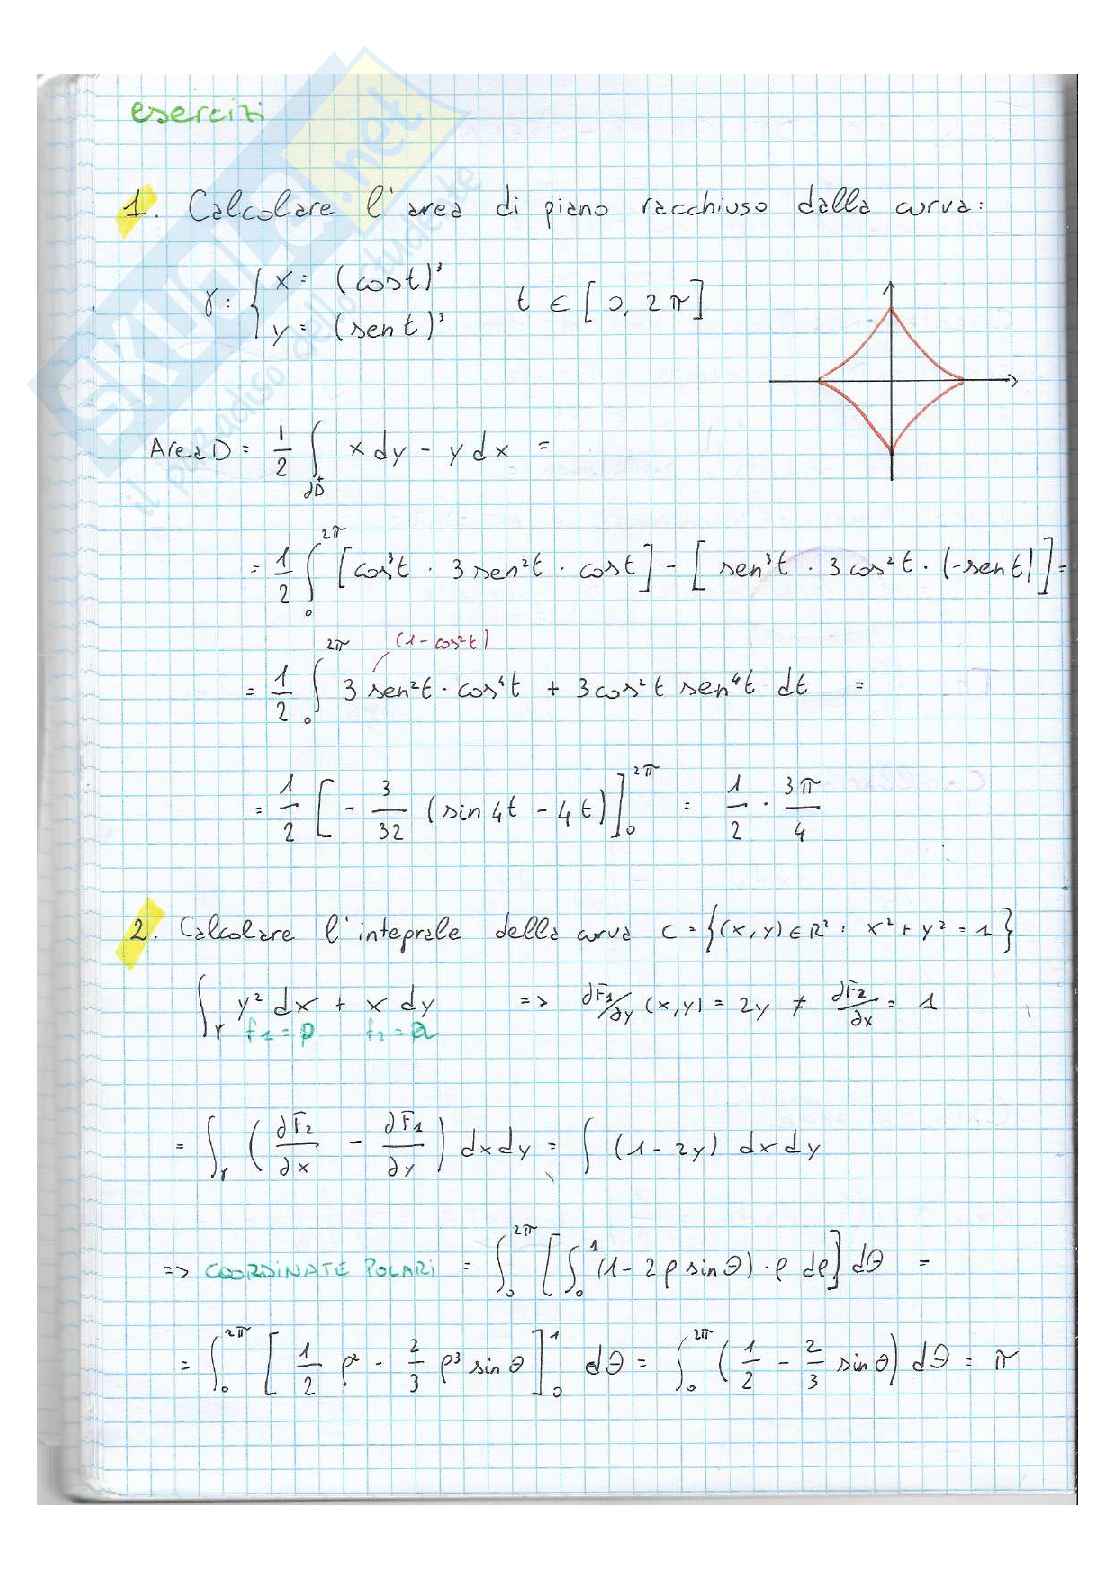 esercizi
1. Calcolare l'area di piano racchiuso dalla curva:
γ: { x = (cos t)³
y = (sen t)³
t ∈ [0, 2π]
Area D = 1/2 ∫_∂D x dy - y dx =
= 1/2 ∫_0^2π [cos³t · 3 sen²t · cos t] - [sen³t · 3 cos²t · (-sen t)] =
(1 - cos²t)
= 1/2 ∫_0^2π 3 sen²t · cos⁴t + 3 cos²t sen⁴t dt =
= 1/2 [ - 3/32 (sin 4t - 4t) ]_0^2π = 1/2 · 3π/4
2. Calcolare l'integrale della curva C = {(x, y) ∈ R² : x² + y² = 1}
∫_γ y² dx + x dy => ∂F₁/∂y (x, y) = 2y ≠ ∂F₂/∂x = 1
f₁ = P f₂ = Q
= ∫_γ (∂F₂/∂x - ∂F₁/∂y) dx dy = ∫ (1 - 2y) dx dy
=> COORDINATE POLARI = ∫_0^2π [ ∫_0^1 (1 - 2ρ sin θ) · ρ dρ ] dθ =
= ∫_0^2π [ 1/2 ρ² - 2/3 ρ³ sin θ ]_0^1 dθ = ∫_0^2π (1/2 - 2/3 sin θ) dθ = π
SKUOLA.net
il paradiso dello studente